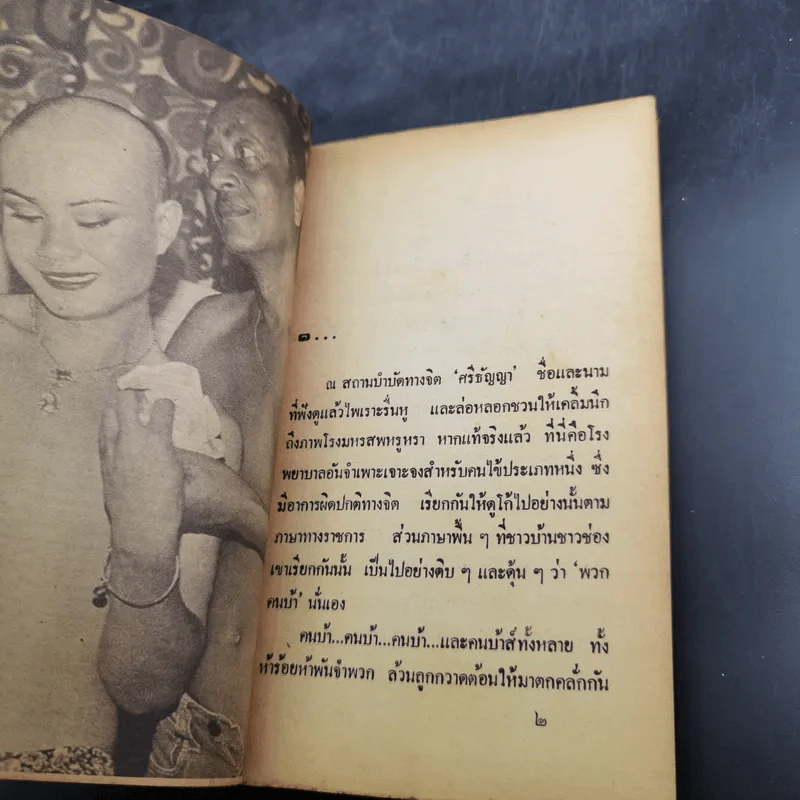 ๑...
ณ สถานบำบัดทางจิต ‘ศรีธัญญา’ ชื่อและนาม
ที่ฟังดูแล้วไพเราะรื่นหู และล่อหลอกชวนให้เคลิ้มนึก
ถึงภาพโรงมหรสพหรูหรา หากแท้จริงแล้ว ที่นี่คือโรง
พยาบาลอันจำเพาะเจาะจงสำหรับคนไข้ประเภทหนึ่ง ซึ่ง
มีอาการผิดปกติทางจิต เรียกกันให้ดูโก้ไปอย่างนั้นตาม
ภาษาทางราชการ ส่วนภาษาพื้น ๆ ที่ชาวบ้านชาวช่อง
เขาเรียกกันนั้น เป็นไปอย่างดิบ ๆ และดุ้น ๆ ว่า ‘พวก
คนบ้า’ นั่นเอง
คนบ้า...คนบ้า...คนบ้า...และคนบ้าส์ทั้งหลาย ทั้ง
ห้าร้อยห้าพันจำพวก ล้วนถูกกวาดต้อนให้มาตกคลั่กกัน
๒